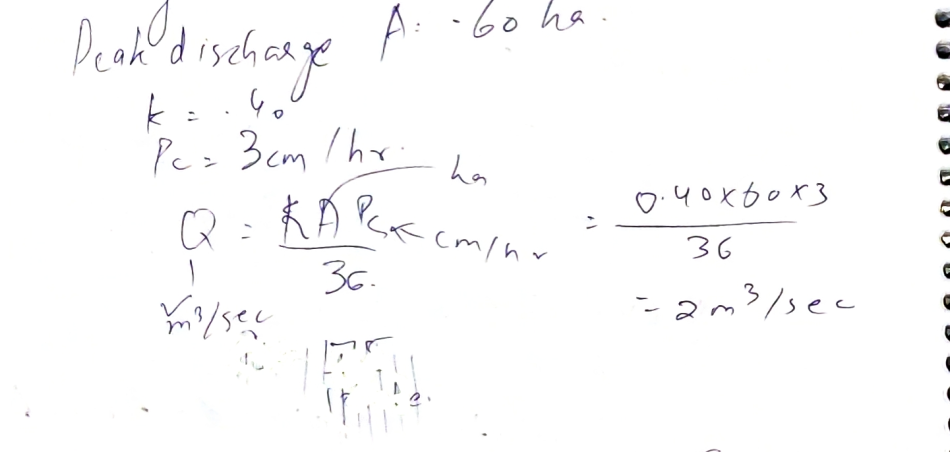 Peak discharge A: .60 ha.
k = .40
Pc = 3 cm / hr.
ha
Q = KAPc cm/hr = 0.40x60x3
36. 36
m³/sec = 2 m³/sec